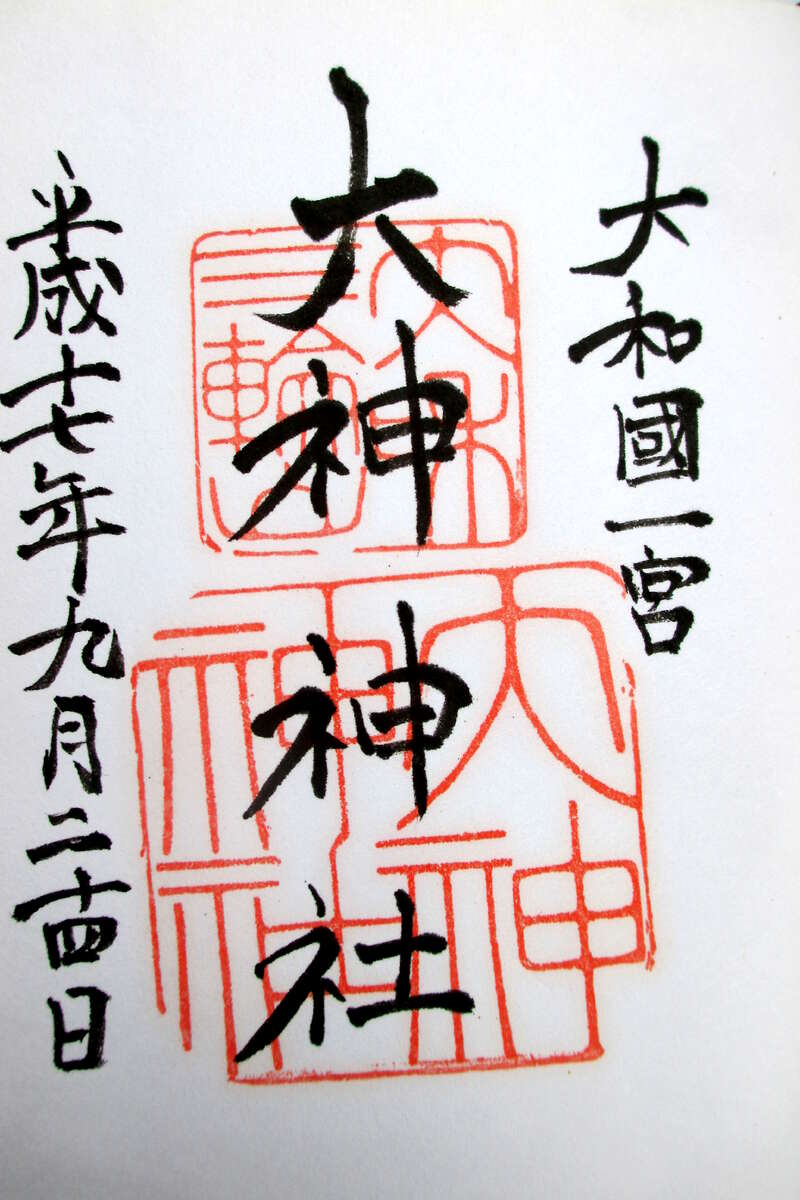 大和國一宮
大神神社
平成十七年九月二十四日
三輪
大神
神社